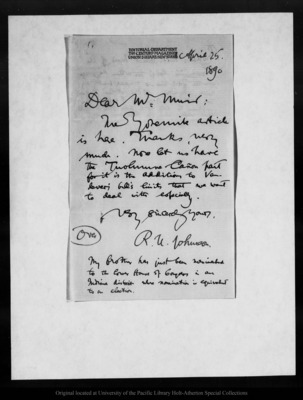 NATIONAL DEPARTMENT
THE CENTURY MAGAZINE
UNION SQUARE NEW YORK
April 25.
1890
Dear Mr. Muir:
The Yosemite article
is here. Thanks, very
much. Now let us have
the Tuolumne Cañon part
for it is the addition to Van-
dever's bill's limits that we want
to deal with especially.
Very sincerely yours,
Over
R. U. Johnson
My Brother has just been nominated
to the Lower House of Congress in an
Indiana district where nomination is equivalent
to an election.
Original located at University of the Pacific Library Holt-Atherton Special Collections